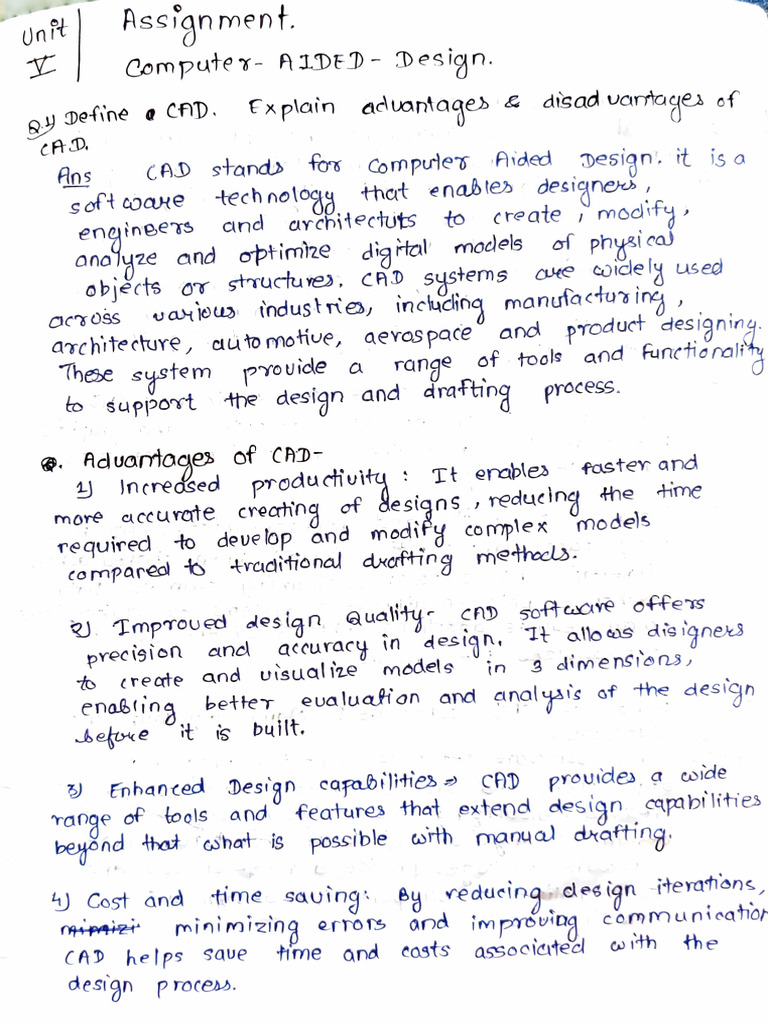 Unit V
Assignment.
Computer- AIDED- Design.
Q.1) Define CAD. Explain advantages & disadvantages of
CA.D.
Ans CAD stands for Computer Aided Design. it is a
software technology that enables designers,
engineers and architectuts to create, modify,
analyze and optimize digital models of physical
objects or structures. CAD systems are widely used
across various industries, including manufacturing,
architecture, automotive, aerospace and product designing.
These system provide a range of tools and functionality
to support the design and drafting process.
Advantages of CAD-
1) Increased productivity : It enables faster and
more accurate creating of designs, reducing the time
required to develop and modify complex models
compared to traditional drafting methods.
2) Improved design Quality- CAD software offers
precision and accuracy in design. It allows disigners
to create and visualize models in 3 dimensions,
enabling better evaluation and analysis of the design
before it is built.
3) Enhanced Design capabilities ⇒ CAD provides a wide
range of tools and features that extend design capabilities
beyond that what is possible with manual drafting.
4) Cost and time saving: By reducing design iterations,
mimizi minimizing errors and improving communication
CAD helps save time and costs associated with the
design process.